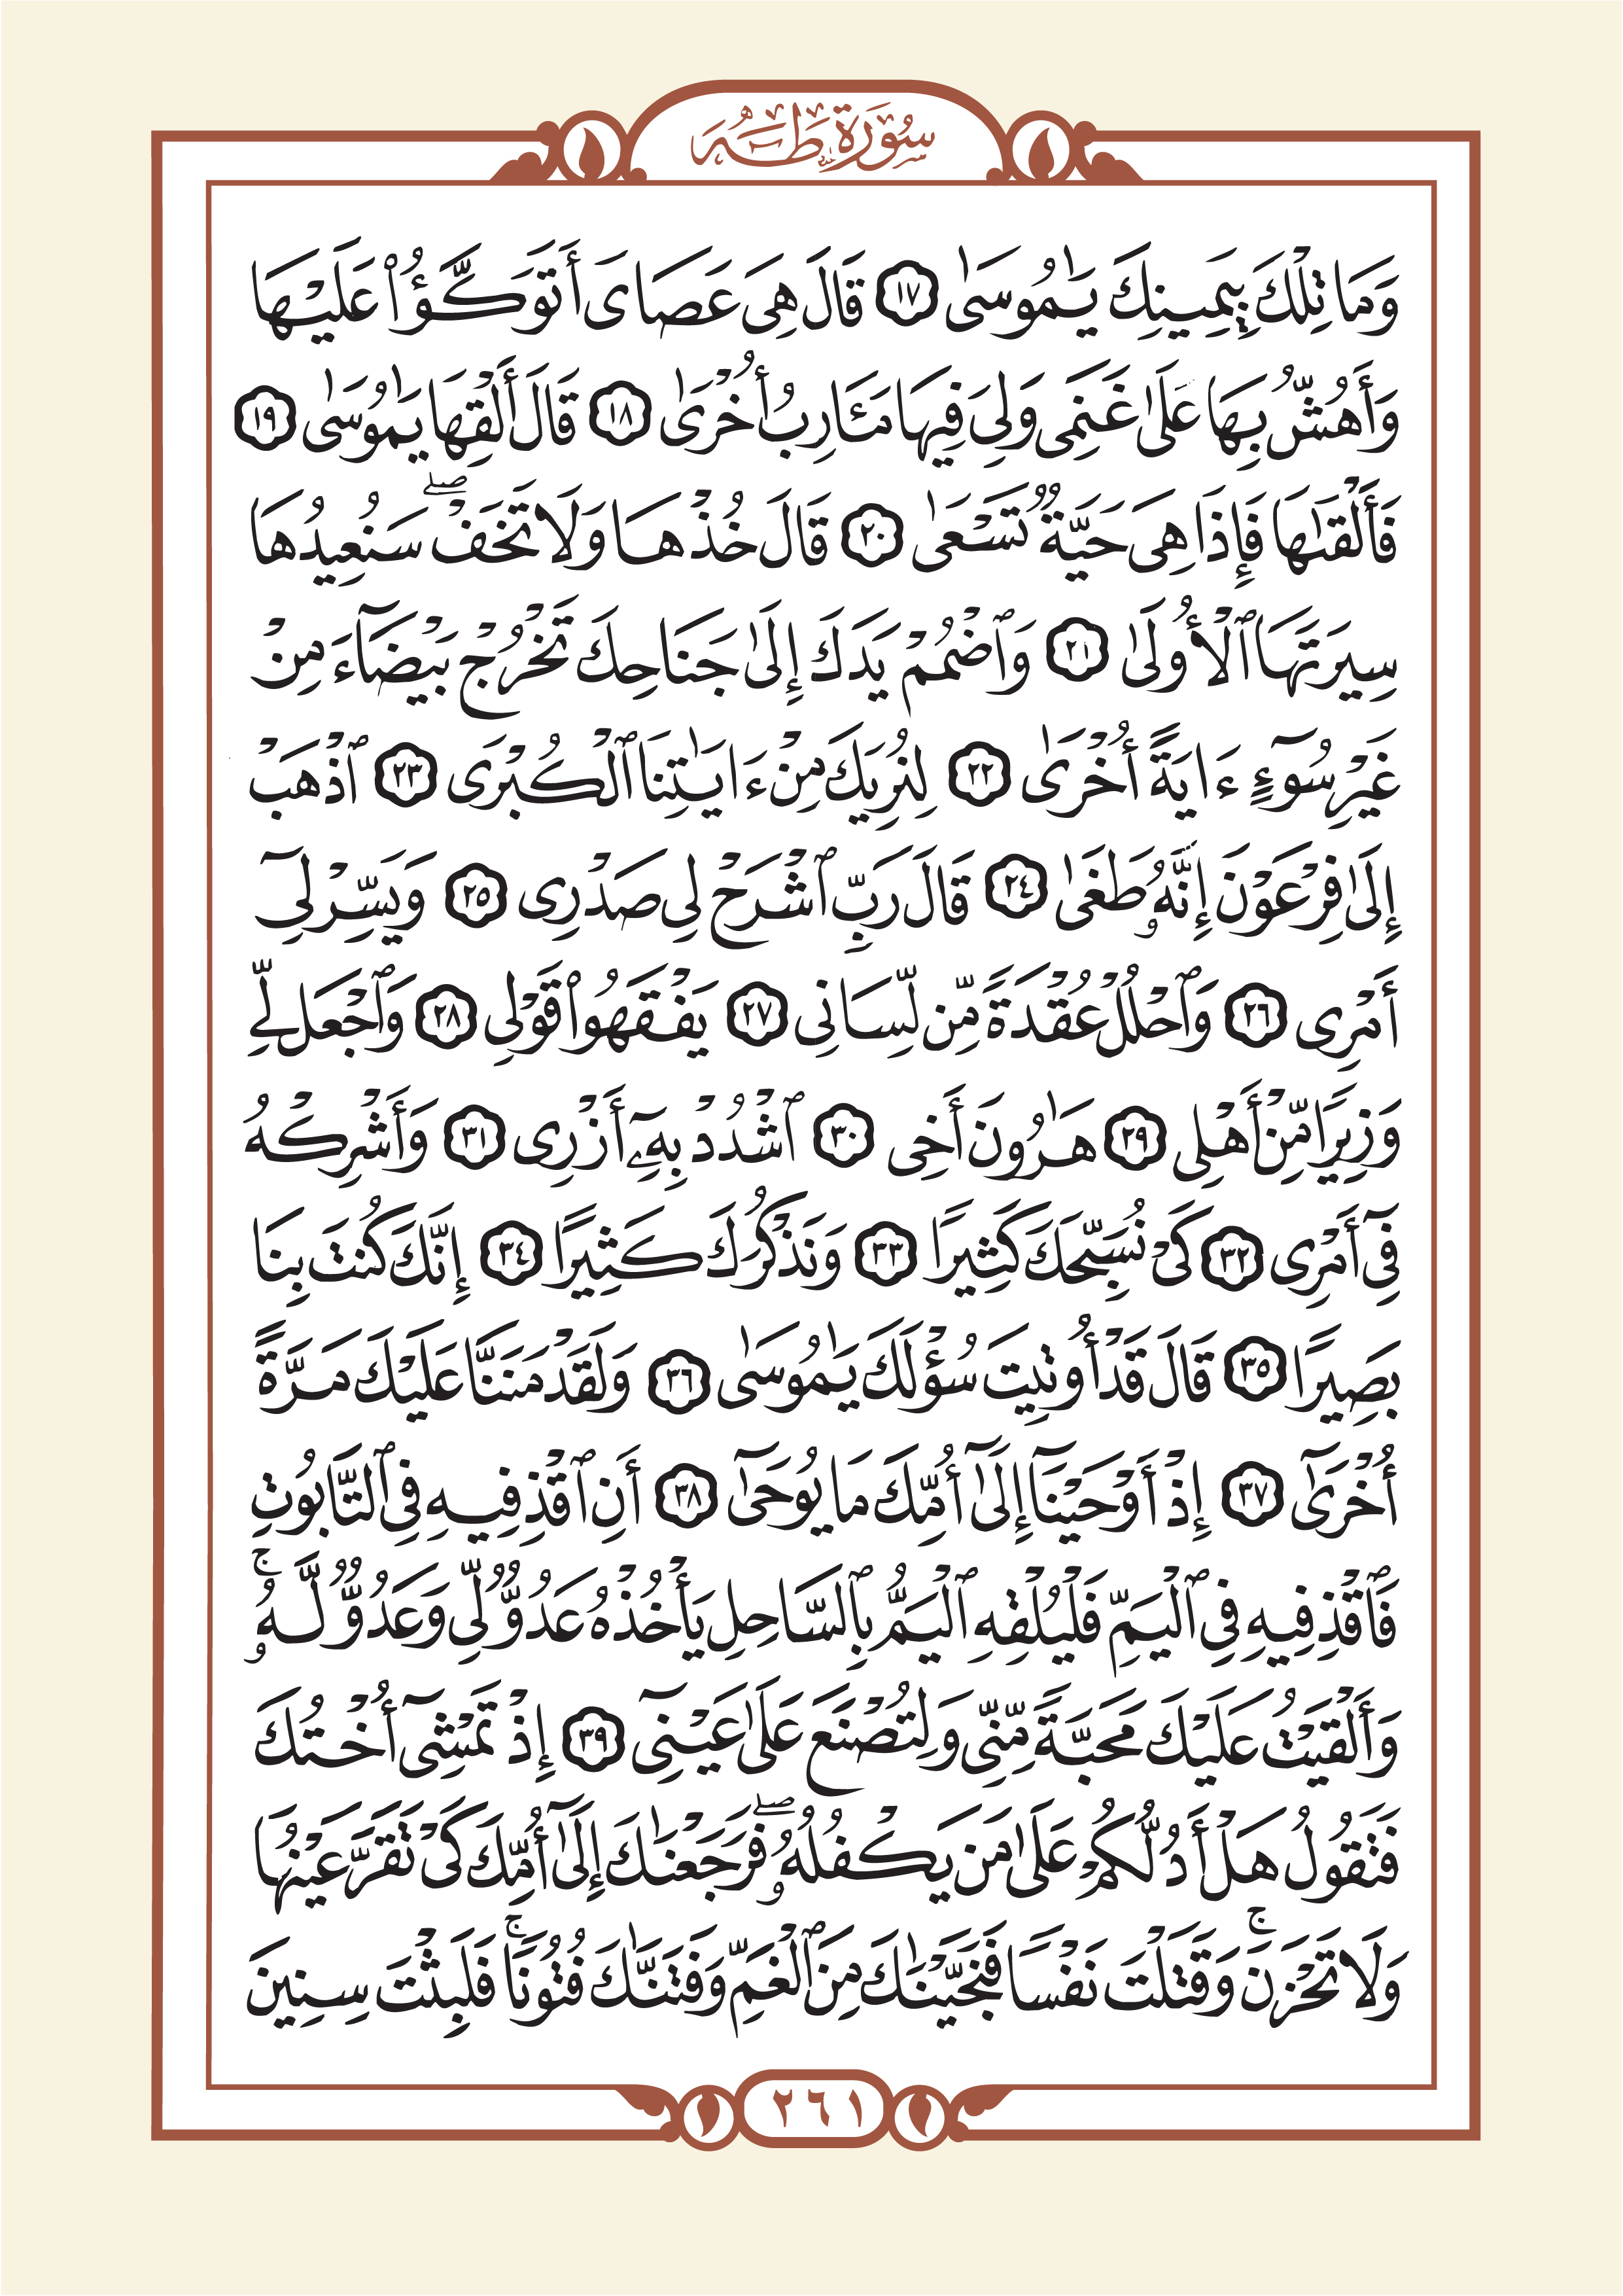 سُورَةُ طه
وَمَا تِلْكَ بِيَمِينِكَ يَٰمُوسَىٰ ١٧ قَالَ هِىَ عَصَاىَ أَتَوَكَّؤُا۟ عَلَيْهَا
وَأَهُشُّ بِهَا عَلَىٰ غَنَمِى وَلِىَ فِيهَا مَـَٔارِبُ أُخْرَىٰ ١٨ قَالَ أَلْقِهَا يَٰمُوسَىٰ ١٩
فَأَلْقَىٰهَا فَإِذَا هِىَ حَيَّةٌ تَسْعَىٰ ٢٠ قَالَ خُذْهَا وَلَا تَخَفْ ۖ سَنُعِيدُهَا
سِيرَتَهَا ٱلْأُولَىٰ ٢١ وَٱضْمُمْ يَدَكَ إِلَىٰ جَنَاحِكَ تَخْرُجْ بَيْضَآءَ مِنْ
غَيْرِ سُوٓءٍ ءَايَةً أُخْرَىٰ ٢٢ لِنُرِيَكَ مِنْ ءَايَٰتِنَا ٱلْكُبْرَى ٢٣ ٱذْهَبْ
إِلَىٰ فِرْعَوْنَ إِنَّهُۥ طَغَىٰ ٢٤ قَالَ رَبِّ ٱشْرَحْ لِى صَدْرِى ٢٥ وَيَسِّرْ لِىٓ
أَمْرِى ٢٦ وَٱحْلُلْ عُقْدَةً مِّن لِّسَانِى ٢٧ يَفْقَهُوا۟ قَوْلِى ٢٨ وَٱجْعَل لِّى
وَزِيرًا مِّنْ أَهْلِى ٢٩ هَٰرُونَ أَخِى ٣٠ ٱشْدُدْ بِهِۦٓ أَزْرِى ٣١ وَأَشْرِكْهُ
فِىٓ أَمْرِى ٣٢ كَىْ نُسَبِّحَكَ كَثِيرًا ٣٣ وَنَذْكُرَكَ كَثِيرًا ٣٤ إِنَّكَ كُنتَ بِنَا
بَصِيرًا ٣٥ قَالَ قَدْ أُوتِيتَ سُؤْلَكَ يَٰمُوسَىٰ ٣٦ وَلَقَدْ مَنَنَّا عَلَيْكَ مَرَّةً
أُخْرَىٰٓ ٣٧ إِذْ أَوْحَيْنَآ إِلَىٰٓ أُمِّكَ مَا يُوحَىٰٓ ٣٨ أَنِ ٱقْذِفِيهِ فِى ٱلتَّابُوتِ
فَٱقْذِفِيهِ فِى ٱلْيَمِّ فَلْيُلْقِهِ ٱلْيَمُّ بِٱلسَّاحِلِ يَأْخُذْهُ عَدُوٌّ لِّى وَعَدُوٌّ لَّهُۥ ۚ
وَأَلْقَيْتُ عَلَيْكَ مَحَبَّةً مِّنِّى وَلِتُصْنَعَ عَلَىٰ عَيْنِىٓ ٣٩ إِذْ تَمْشِىٓ أُخْتُكَ
فَتَقُولُ هَلْ أَدُلُّكُمْ عَلَىٰ مَن يَكْفُلُهُۥ ۖ فَرَجَعْنَٰكَ إِلَىٰٓ أُمِّكَ كَىْ تَقَرَّ عَيْنُهَا
وَلَا تَحْزَنَ ۚ وَقَتَلْتَ نَفْسًا فَنَجَّيْنَٰكَ مِنَ ٱلْغَمِّ وَفَتَنَّٰكَ فُتُونًا ۚ فَلَبِثْتَ سِنِينَ
٢٦١